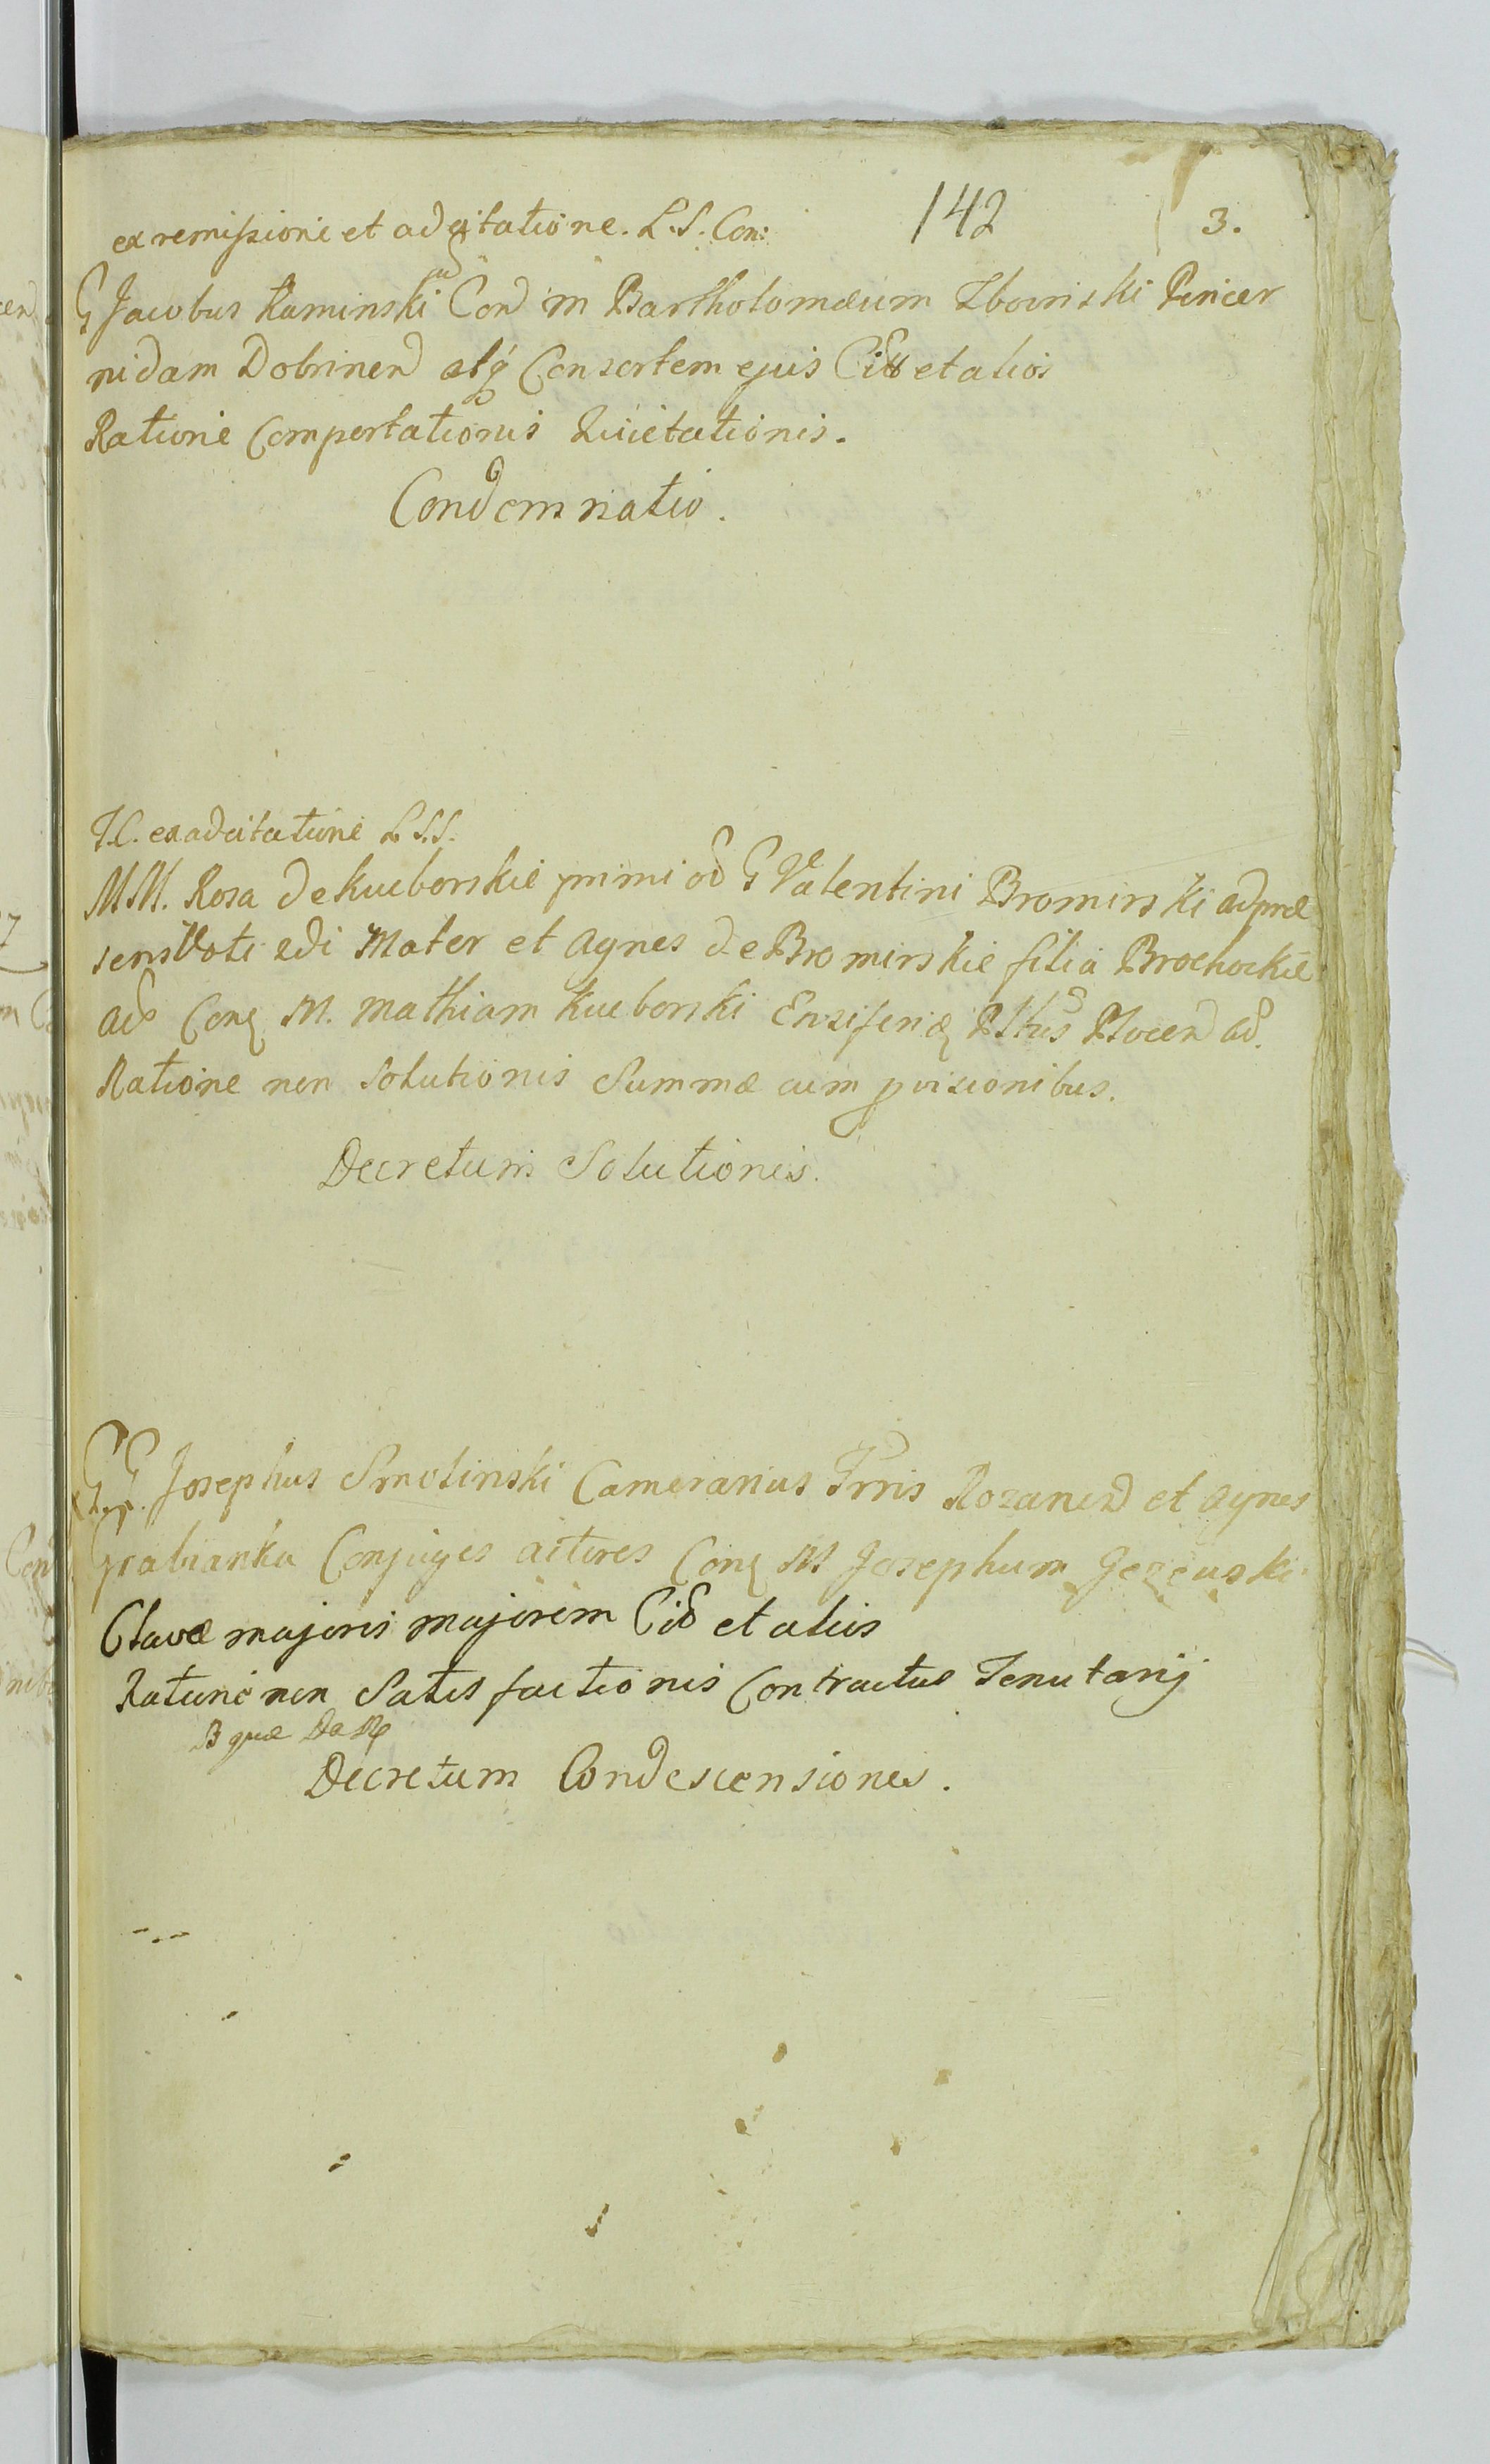 142 3.
ex remissione et adcitatione. L.S. Con:
G Jacobus Kaminski Cond in Bartholomæum Zboinski Pincer
nidam Dobrinen atq Consortem ejus Citt et alios
Ratione Comportationis Quietationis.
Condemnatio.
T.C. ex adcitatione L.S.S.
MM. Rosa de Kucborskie primi od G Valentini Bromirski ad præ
sens Voti Mater et Agnes de Bromirskie filia Brochockie
Conq M. Mathiam Kucborski Ensiferq Pltus Plocen
Ratione non Solutionis Summæ cum pvisionibus.
Decretum Solutionis.
GG Josephus Smolinski Camerarius Trris Rozanen et Agnes
Grabianka Conjuges actores Conq M Josephum Jezewski
Clavæ majoris majorem Cit et aliis
Ratione non Satisfactionis Contractus Tenutarij
B quæ
Decretum Condescensiones.